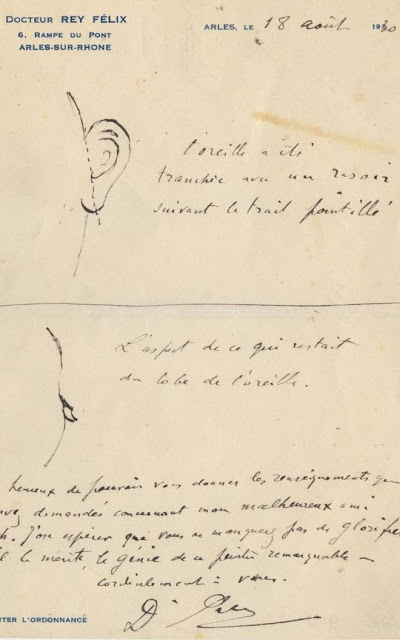 DOCTEUR REY FÉLIX
6, RAMPE DU PONT
ARLES-SUR-RHONE
ARLES, LE 18 août 1930
l'oreille a été
tranchée avec un rasoir
suivant le trait pointillé
L'aspect de ce qui restait
du lobe de l'oreille.
heureux de pouvoir vous donner les renseignements que
avez demandés concernant mon malheureux ami
h. J'ose espérer que vous ne manquerez pas de glorifier
il le mérite, le génie de ce peintre remarquable –
cordialement à vous.
Dr Rey
RTER L'ORDONNANCE